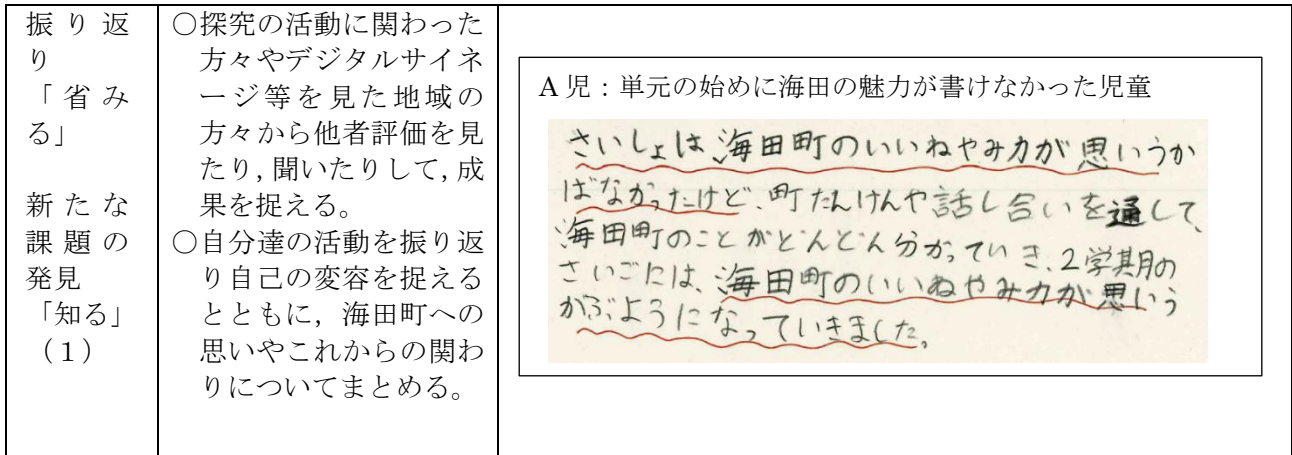 振り返
り
「省み
る」
新たな
課題の
発見
「知る」
（１）
○探究の活動に関わった
方々やデジタルサイネ
ージ等を見た地域の
方々から他者評価を見
たり，聞いたりして，成
果を捉える。
○自分達の活動を振り返
り自己の変容を捉える
とともに，海田町への
思いやこれからの関わ
りについてまとめる。
A 児：単元の始めに海田の魅力が書けなかった児童
さいしょは海田町のいいねやみ力が思いうか
ばなかったけど、町たんけんや話し合いを通して、
海田町のことがどんどん分かっていき、2学期の
さいごには、海田町のいいねやみ力が思いう
かぶようになっていきました。